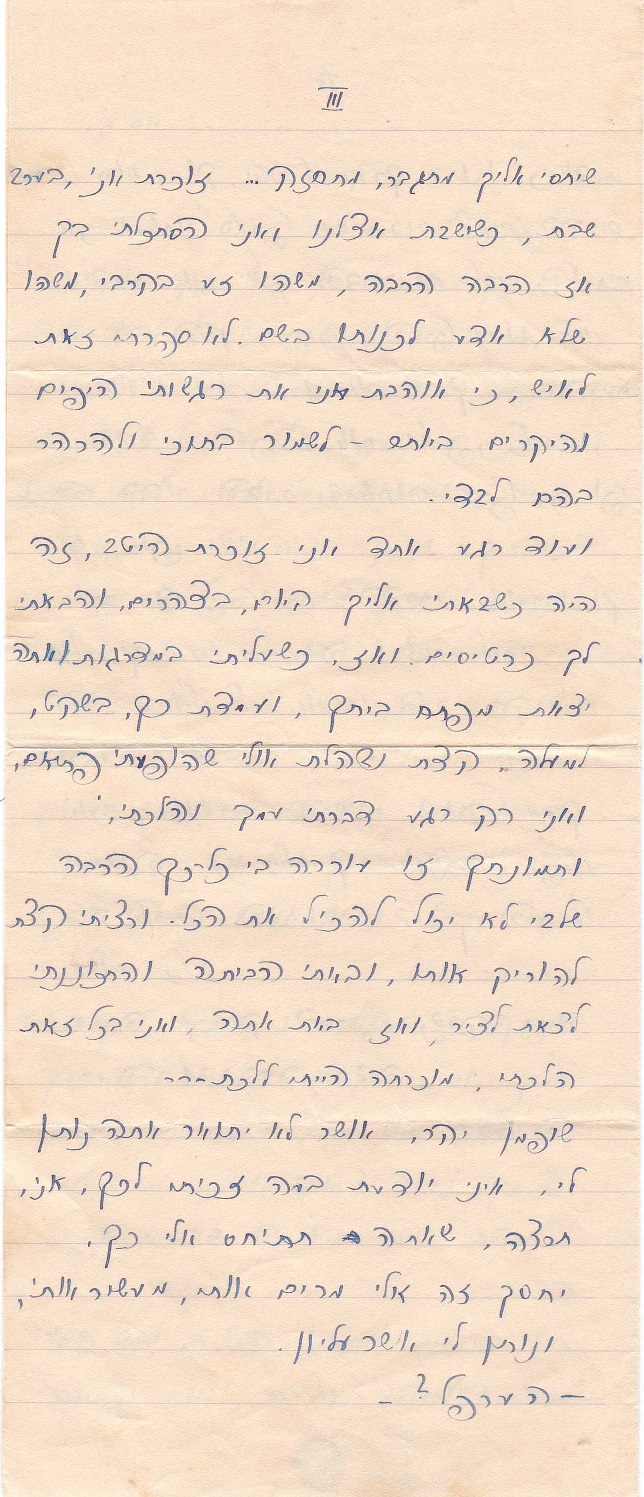 III
שיחסי אליך מתגבר, מתחזק... זוכרת אני, בערב
שבת, כשישבת אצלנו ואני הסתכלתי בך
אז הרבה הרבה, משהו זע בקרבי, משהו
שלא אדע לכנותו בשם. לא ספרתי זאת
לאיש, כי אוהבת אני את רגשותי היפים
והיקרים ביותר – לשמור בתוכי ולהרהר
בהם לבדי.
ועוד רגע אחד אני זוכרת היטב, זה
היה כשבאתי אליך היום, בצהרים, והבאתי
לך כרטיסים. ואז, כשעליתי במדרגות ואתה
יצאת מפתח ביתך, ועמדת כך, בשקט,
למעלה.. קצת נבהלת אולי שהופעתי פתאום,
ואני רק רגע דברתי עמך והלכתי,
ותמונתך זו עוררה בי כל-כך הרבה
שלבי לא יכול להכיל את הכל. ורציתי קצת
להוריק אותו, ובאתי הביתה והתכוננתי
לצאת לעיר, ואז באת אתה, ואני בכל זאת
הלכתי, מוכרחה הייתי ללכת---
שופמן יקר, אושר לא יתואר אתה נותן
לי, איני יודעת במה זכיתי לכך, אני,
תרצה, שאתה תתיחס אלי כך,
יחסך זה אלי מרים אותי, מעשיר אותי,
ונותן לי אושר עליון.
– הערפל? –